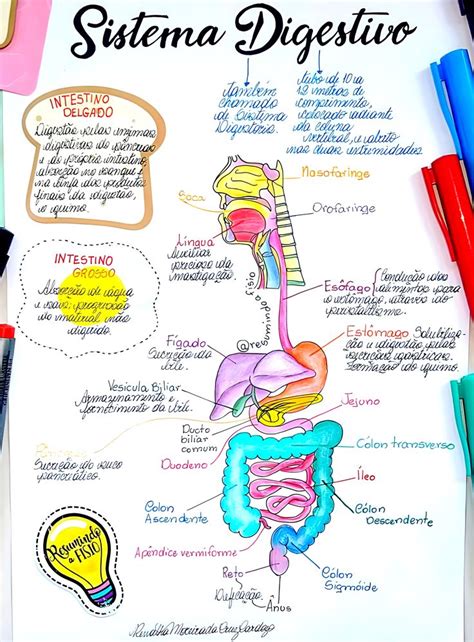 Sistema Digestivo
também
chamado
de Sistema
Digestório.
tubo de 10 a
12 metros de
comprimento,
colocado adiante
da coluna
vertebral, e aberto
nas duas extremidades
INTESTINO
DELGADO
Digestão pelas enzimas
digestivas do pâncreas
e do próprio intestino,
absorção no sangue e
na linfa dos produtos
finais da digestão,
o quimo.
INTESTINO
GROSSO
Absorção de água
e sais, progressão
do material não
digerido.
Nasofaringe
Boca
Orofaringe
Língua
Auxiliar
Esôfago
Condução dos
alimentos para
o estômago, através do
peristaltismo
Estômago
e digestão pelas
secreções gástricas.
Formação do quimo.
Fígado
Secreção da
bile.
Vesícula Biliar
Armazenamento e
fornecimento da bile.
Ducto
biliar
comum
Jejuno
Pâncreas
Secreção do suco
pancreático.
Duodeno
Cólon transverso
Íleo
Cólon
Ascendente
Cólon
Descendente
Apêndice vermiforme
Cólon
Sigmóide
Reto
Defecação
Ânus
Resumindo
a FISIO